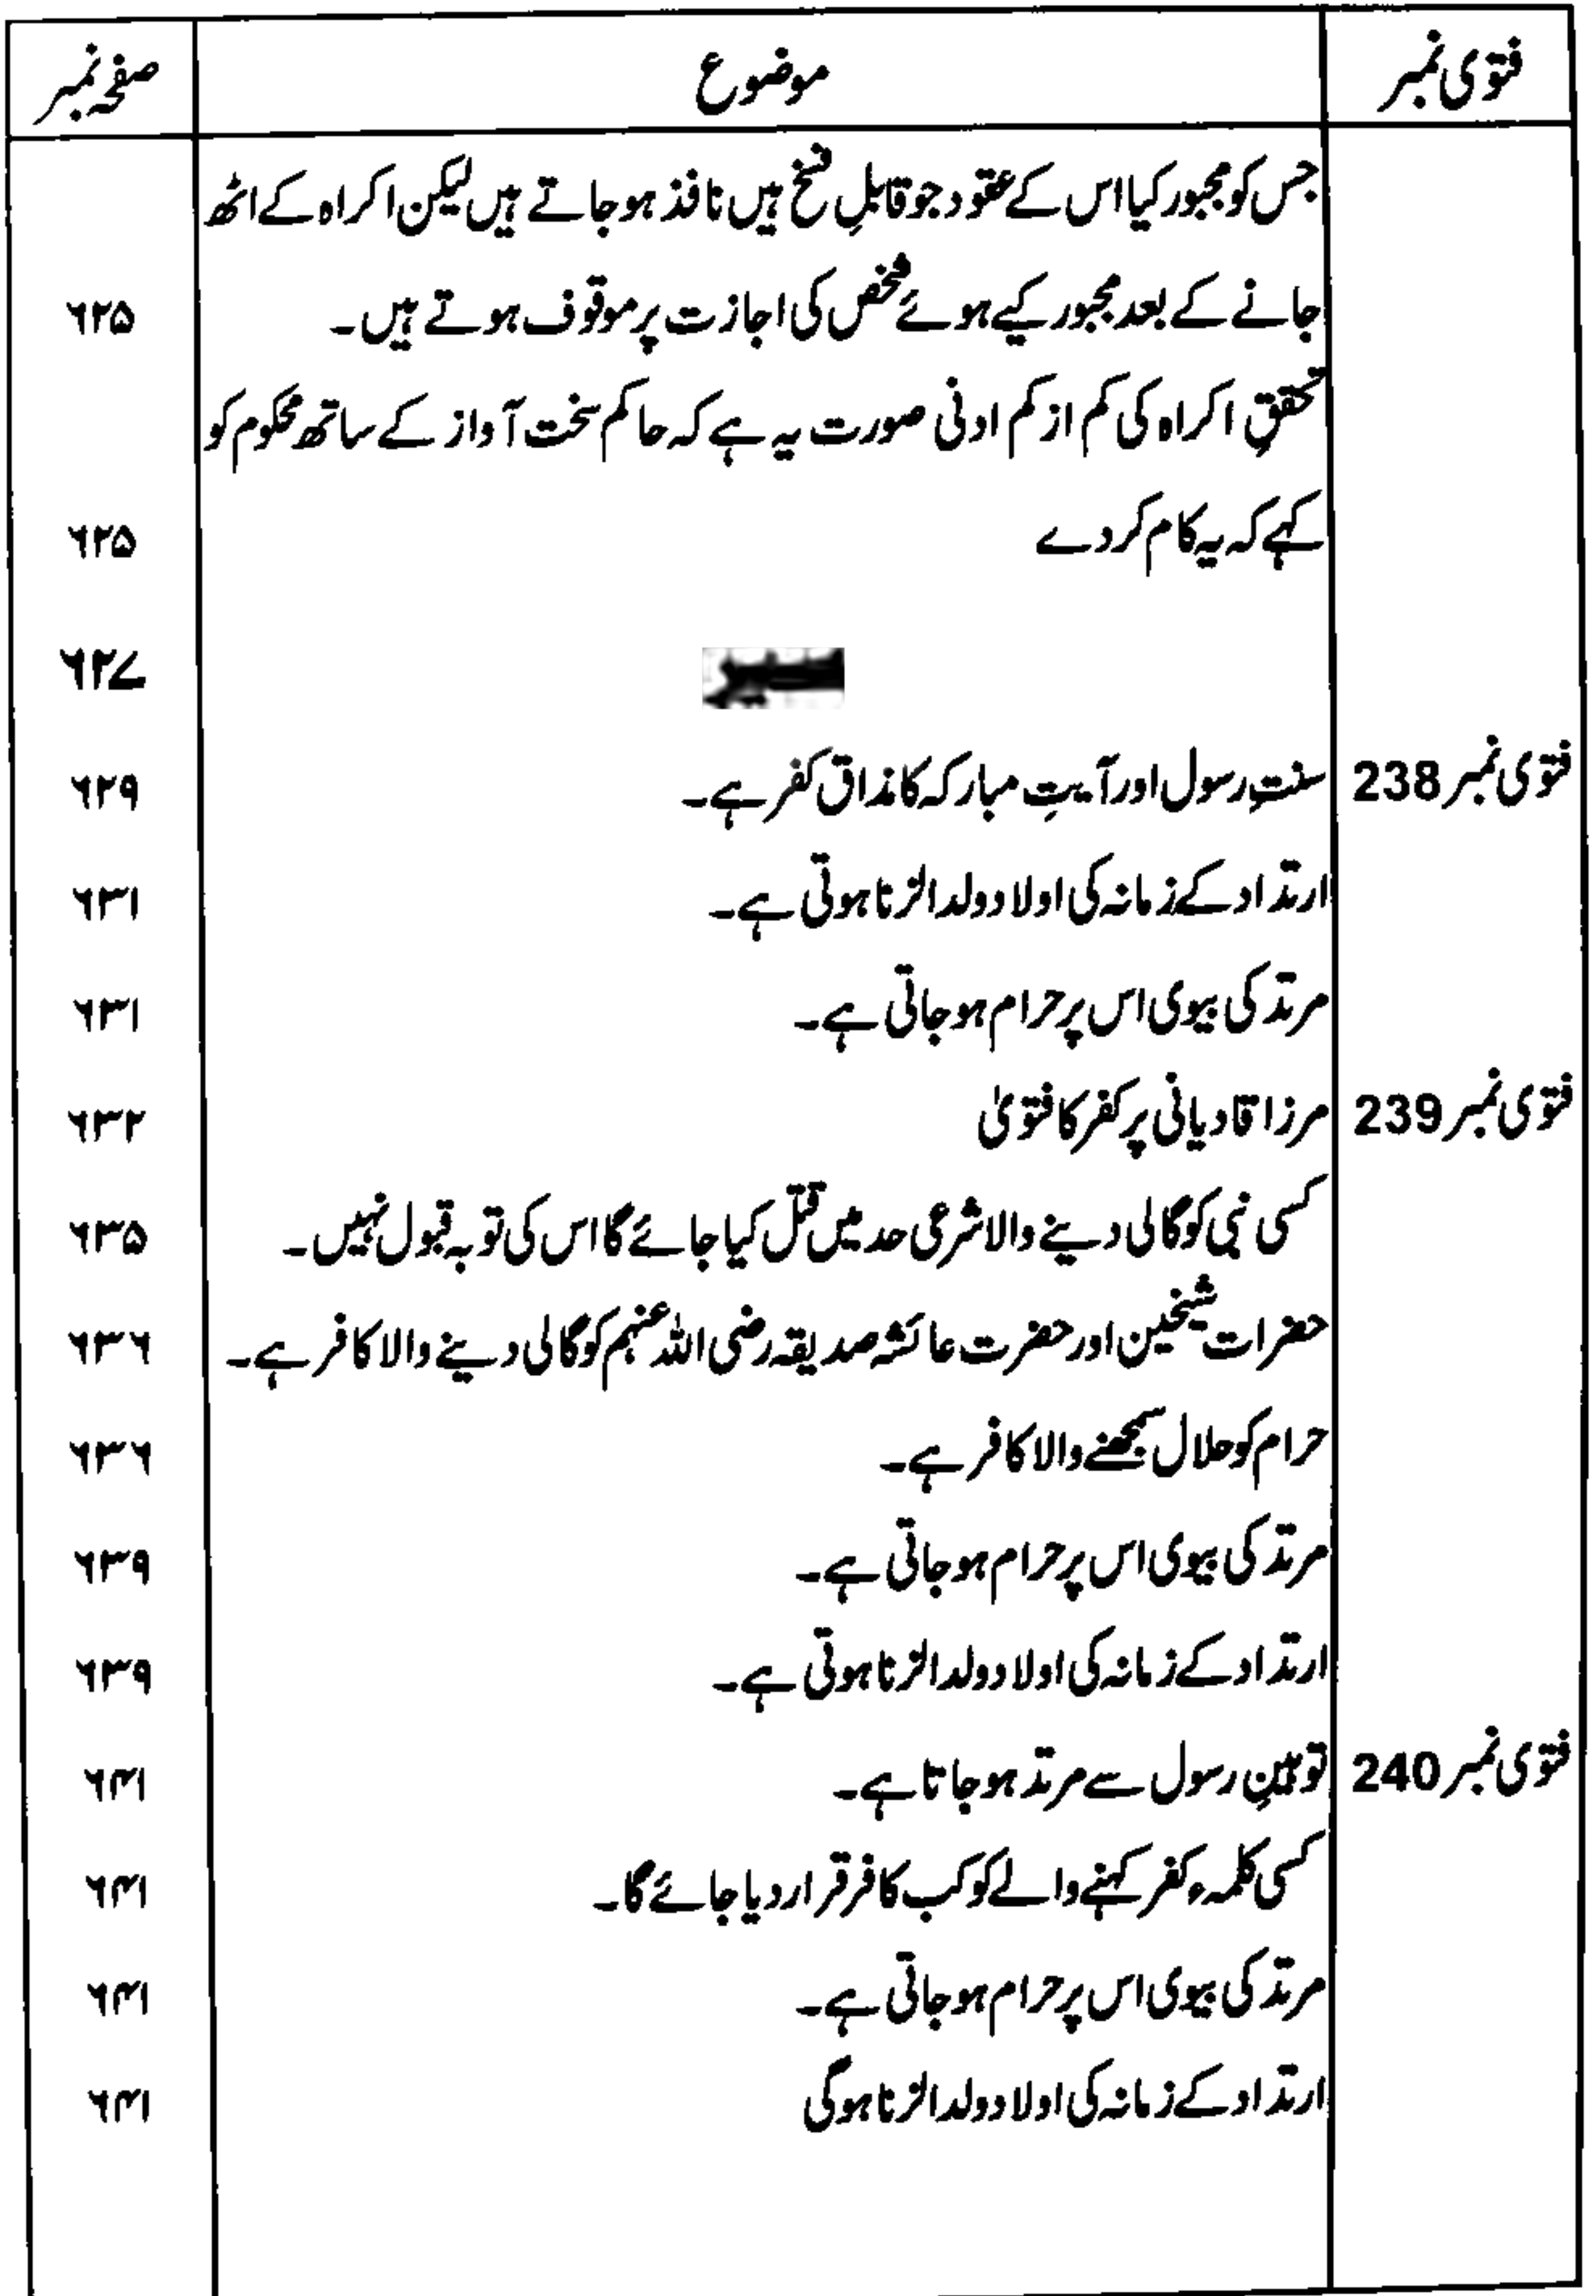 فتوی نمبر موضوع صفحہ نمبر
جس کو مجبور کیا اس کے عقود جو قابلِ فسخ ہیں نافذ ہوجاتے ہیں لیکن اکراہ کے اٹھ
جانے کے بعد مجبور کیے ہوئے شخص کی اجازت پر موقوف ہوتے ہیں۔ ۶۲۵
تحققِ اکراہ کی کم از کم ادنی صورت یہ ہے کہ حاکم سخت آواز کے ساتھ محکوم کو
کہے کہ یہ کام کردے ۶۲۵
۶۲۷
فتوی نمبر 238 سنتِ رسول اور آیتِ مبارکہ کا مذاق کفر ہے۔ ۶۲۹
ارتداد کے زمانہ کی اولاد ولد الزنا ہوتی ہے۔ ۶۳۱
مرتد کی بیوی اس پر حرام ہوجاتی ہے۔ ۶۳۱
فتوی نمبر 239 مرزا قادیانی پر کفر کا فتویٰ ۶۳۲
کسی نبی کو گالی دینے والا شرعی حد میں قتل کیا جائے گا اس کی توبہ قبول نہیں۔ ۶۳۵
حضرات شیخین اور حضرت عائشہ صدیقہ رضی اللہ عنہم کو گالی دینے والا کافر ہے۔ ۶۳۶
حرام کو حلال سمجھنے والا کافر ہے۔ ۶۳۶
مرتد کی بیوی اس پر حرام ہوجاتی ہے۔ ۶۳۹
ارتداد کے زمانہ کی اولاد ولد الزنا ہوتی ہے۔ ۶۳۹
فتوی نمبر 240 توہینِ رسول سے مرتد ہوجاتا ہے۔ ۶۴۱
کسی کلمہء کفر کہنے والے کو کب کافر قرار دیا جائے گا۔ ۶۴۱
مرتد کی بیوی اس پر حرام ہوجاتی ہے۔ ۶۴۱
ارتداد کے زمانہ کی اولاد ولد الزنا ہوگی ۶۴۱